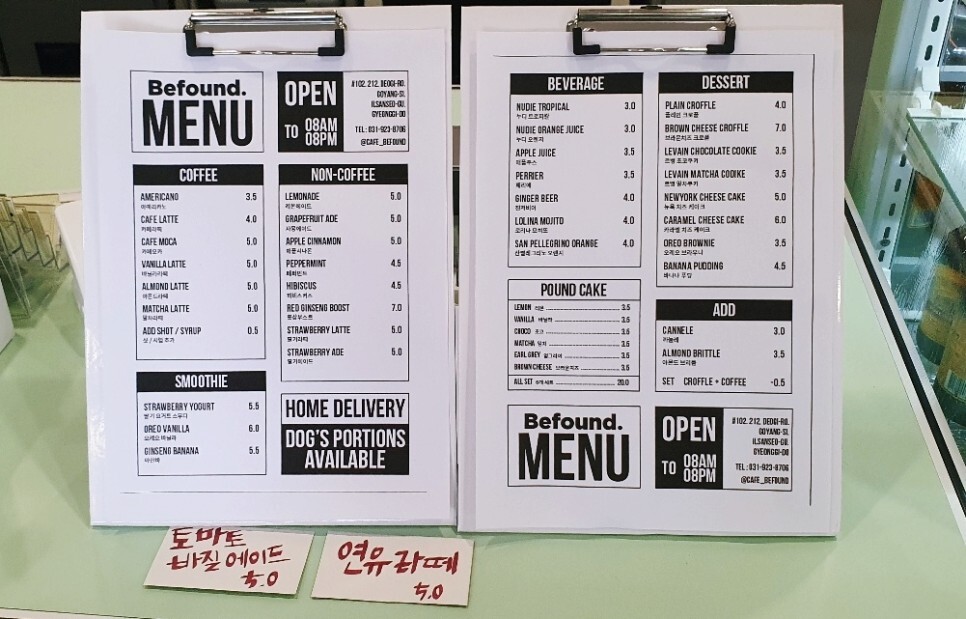 Befound.
MENU
OPEN
TO 08AM
08PM
#102. 212. DEOGI-RO.
GOYANG-SI.
ILSANSEO-GU.
GYEONGGI-DO
TEL : 031-923-8706
@CAFE_BEFOUND
COFFEE
AMERICANO 3.5
아메리카노
CAFE LATTE 4.0
카페라떼
CAFE MOCA 5.0
카페모카
VANILLA LATTE 5.0
바닐라라떼
ALMOND LATTE 5.0
아몬드라떼
MATCHA LATTE 5.0
말차라떼
ADD SHOT / SYRUP 0.5
샷 / 시럽 추가
SMOOTHIE
STRAWBERRY YOGURT 5.5
딸기 요거트 스무디
OREO VANILLA 6.0
오레오 바닐라
GINSENG BANANA 5.5
NON-COFFEE
LEMONADE 5.0
레몬에이드
GRAPEFRUIT ADE 5.0
자몽에이드
APPLE CINNAMON 5.0
애플시나몬
PEPPERMINT 4.5
페퍼민트
HIBISCUS 4.5
히비스커스
RED GINSENG BOOST 7.0
홍삼부스트
STRAWBERRY LATTE 5.0
딸기라떼
STRAWBERRY ADE 5.0
딸기에이드
HOME DELIVERY
DOG'S PORTIONS
AVAILABLE
BEVERAGE
NUDIE TROPICAL 3.0
누디 트로피칼
NUDIE ORANGE JUICE 3.0
누디 오렌지
APPLE JUICE 3.5
애플쥬스
PERRIER 3.5
페리에
GINGER BEER 4.0
진저비어
LOLINA MOJITO 4.0
로리나 모히또
SAN PELLEGRINO ORANGE 4.0
산펠레그리노 오렌지
POUND CAKE
LEMON 레몬 3.5
VANILLA 바닐라 3.5
CHOCO 초코 3.5
MATCHA 말차 3.5
EARL GREY 얼그레이 3.5
BROWN CHEESE 브라운치즈 3.5
ALL SET 20.0
Befound.
MENU
DESSERT
PLAIN CROFFLE 4.0
플레인 크로플
BROWN CHEESE CROFFLE 7.0
브라운치즈 크로플
LEVAIN CHOCOLATE COOKIE 3.5
르뱅 초코쿠키
LEVAIN MATCHA COOIKE 3.5
르뱅 말차쿠키
NEWYORK CHEESE CAKE 5.0
뉴욕 치즈 케이크
CARAMEL CHEESE CAKE 6.0
카라멜 치즈 케이크
OREO BROWNIE 3.5
오레오 브라우니
BANANA PUDDING 4.5
바나나 푸딩
ADD
CANNELE 3.0
까눌레
ALMOND BRITTLE 3.5
아몬드 브리틀
SET CROFFLE + COFFEE -0.5
OPEN
TO 08AM
08PM
#102. 212. DEOGI-RO.
GOYANG-SI.
ILSANSEO-GU.
GYEONGGI-DO
TEL : 031-923-8706
@CAFE_BEFOUND
토마토
바질에이드
5.0
연유라떼
5.0